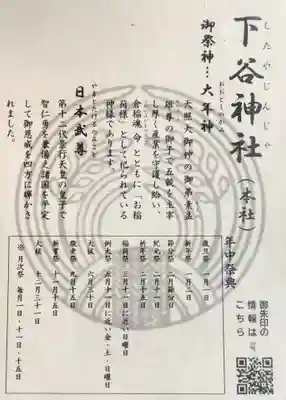 したやじんじゃ
下谷神社(本社)
御祭神…大年神
おおとしのかみ
天照大御神の御弟素盞
雄尊の御子で五穀を主宰
し厚く産業を守護し給い、
倉稲魂命とともに「お稲
荷様」として祀られている
神様であります。
やまとたけるのみこと
日本武尊
第十二代景行天皇の皇子で
智仁勇を兼備え諸国を平定
して御恩威を四方に輝かさ
れました。
年中祭典
歳旦祭 一月一日
新年祭 一月二日
節分祭 二月節分日
紀元祭 二月十一日
祈年祭 二月十五日
稲荷祭 三月十日に近い日曜日
例大祭 五月十一日に近い金・土・日曜日
大祓 六月三十日
敬老祭 九月十五日
新嘗祭 十一月
大祓 十二月三十一日
※月次祭 毎月一日・十一日・十五日
御朱印の
情報は
こちら